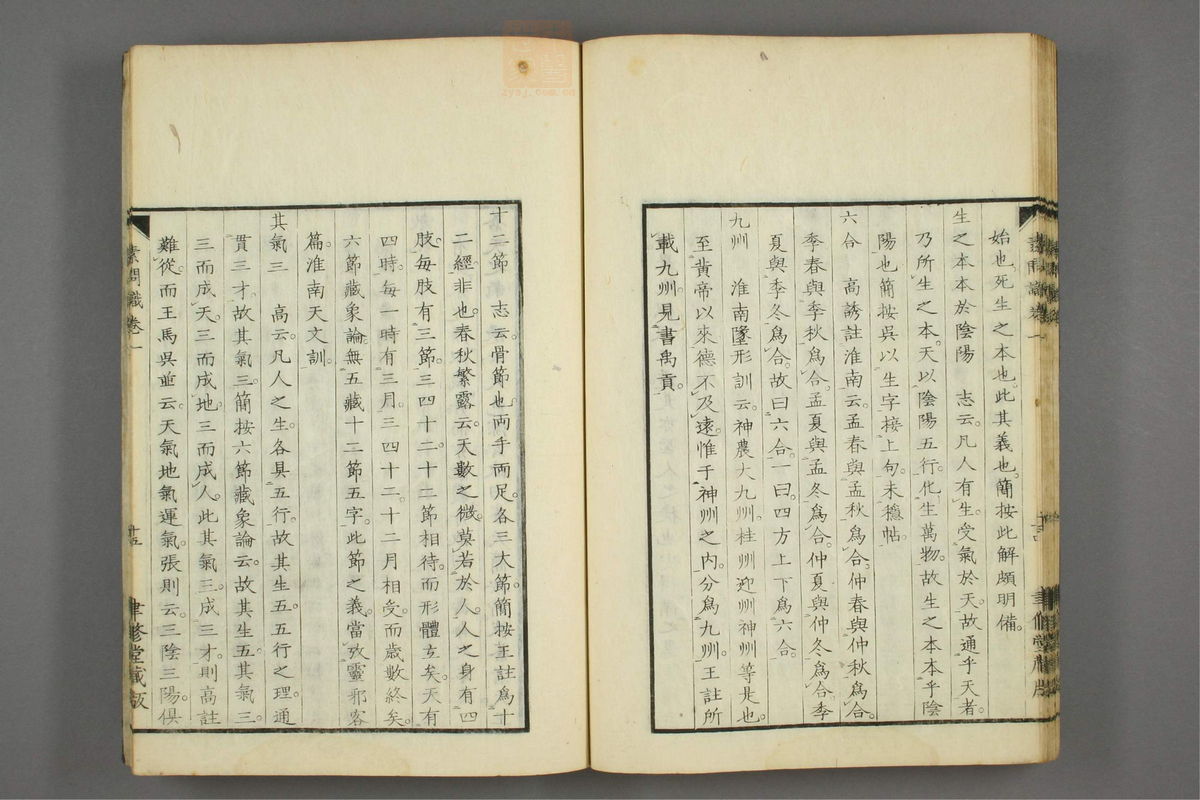 始也死生之本也此其義也簡按此解頗明備
生之本本於陰陽 志云凡人有生受氣於天故通乎天者
乃所生之本天以陰陽五行化生萬物故生之本本乎陰
陽也簡按吳以生字接上句未穩帖
六合 高誘註淮南云孟春與孟秋爲合仲春與仲秋爲合
季春與季秋爲合孟夏與孟冬爲合仲夏與仲冬爲合季
夏與季冬爲合故曰六合一曰四方上下爲六合
九州 淮南墬形訓云神農大九州桂州迎州神州等是也
至黃帝以來德不及遠惟于神州之內分爲九州王註所
載九州見書禹貢
十二節 志云骨節也両手両足各三大節簡按王註爲十
二經非也春秋繁露云天數之微莫若於人人之身有四
肢每肢有三節三四十二十二節相待而形體立矣天有
四時每一時有三月三四十二十二月相受而歲數終矣
六節藏象論無五藏十二節五字此節之義當攷靈邪客
篇淮南天文訓
其氣三 高云凡人之生各具五行故其生五五行之理通
貫三才故其氣三簡按六節藏象論云故其生五其氣三
三而成天三而成地三而成人此其氣三成三才則高註
難從而王馬吳並云天氣地氣運氣張則云三陰三陽俱
素問識卷一
十五
聿修堂藏版
zysj.com.cn